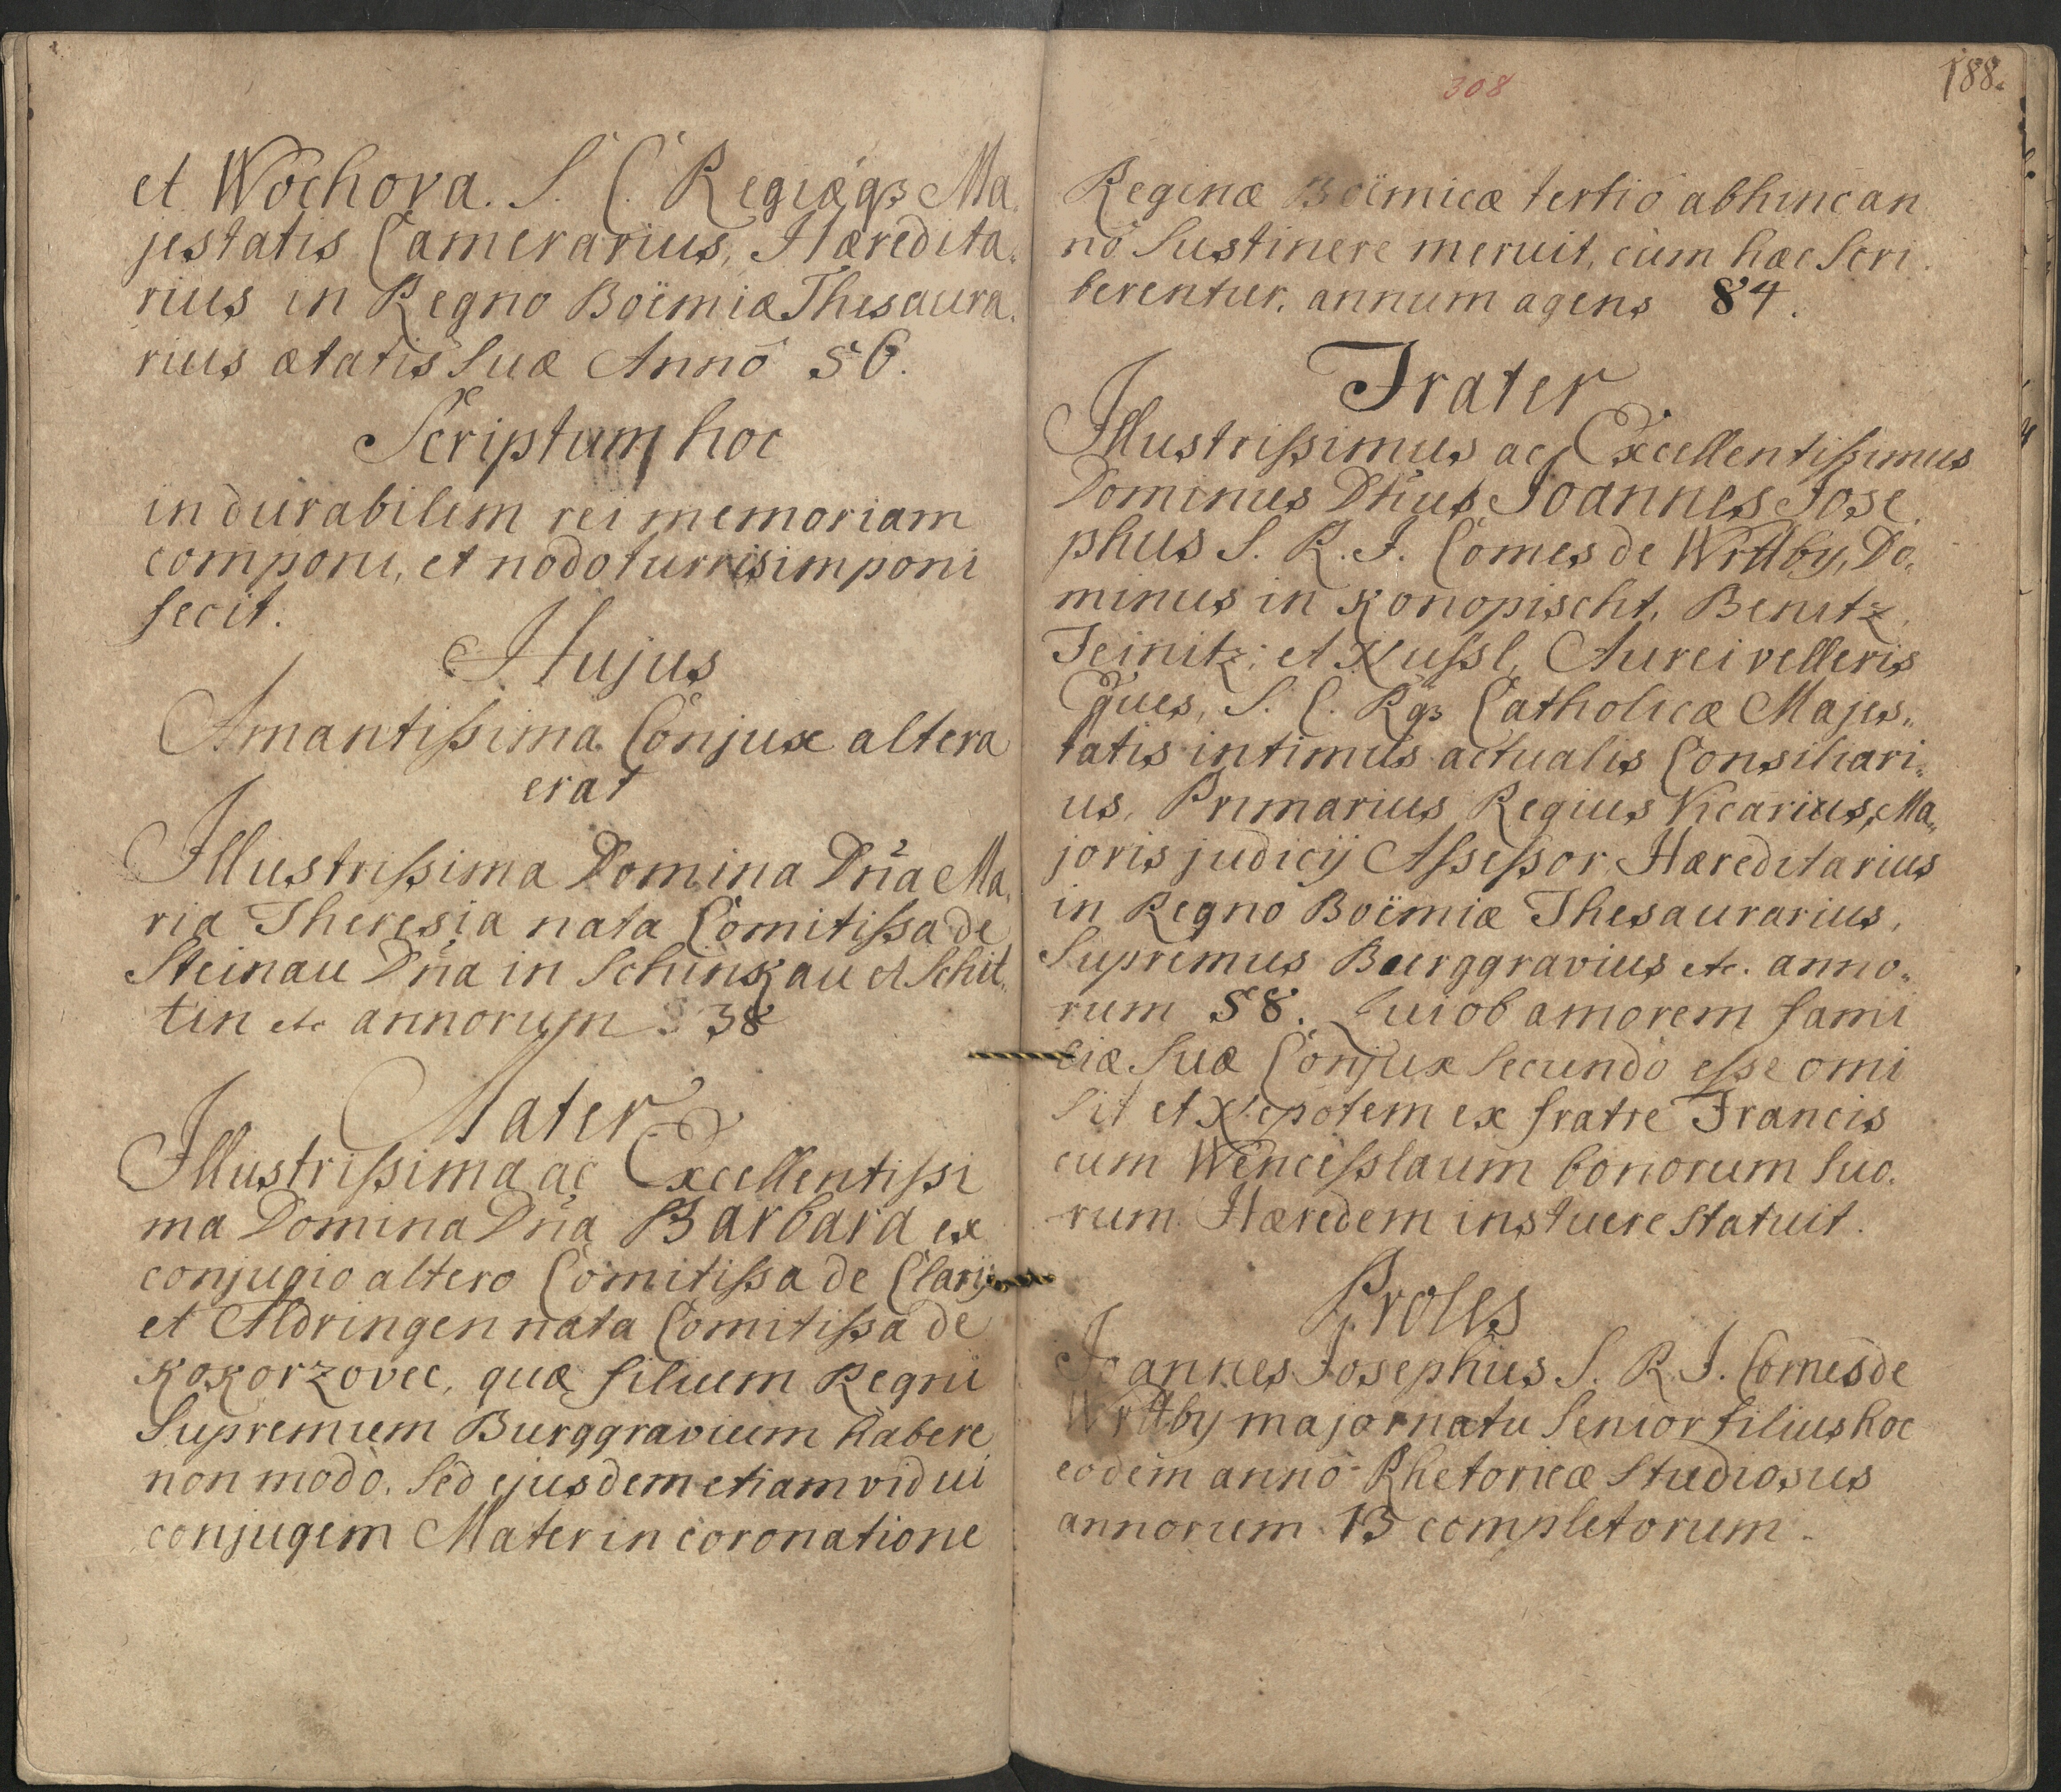 et Wochova. S. C. Regiæqꝫ Ma,
jestatis Camerarius, Hæredita,,
rius in Regno Boëmiæ Thesaura,,
rius ætatis Suæ Annô 56.
Scriptum hoc
in durabilem rei memoriam
componi, et nodo turris imponi
fecit.
Hujus
Amantißima Conjux altera
erat
Illustrißima Domina Dn̄a Ma,
ria Theresia nata Comitißa de
Steinau Dn̄a in Schinkau et Schit,,
tin etc annorum 38
Mater
Illustrißima ac Excellentißi
ma Domina Dn̄a Barbara ex
conjugio altero Comitißa de Clarij
et Aldringen nata Comitißa de
Kokorzovec, quæ filium Regni
Supremum Burggravium habere
non modò, sed ejusdem etiam vidui
conjugem Mater in coronatione
308
188.
Reginæ Boëmicæ tertiô abhinc an
nô Sustinere meruit, cùm hæc Scri
berentur, annum agens 84.
Frater
Illustrißimus ac Excellentißimus
Dominus Dn̄us Joannes Jose,
phus S. R. I. Comes de Wrttby, Do,
minus in Konopischt, Benitz,
Teinitz, et Nußl, Aurei velleris
Eques, S. C. Rqꝫ Catholicæ Majes,,
tatis intimus actualis Consiliari,,
us, Primarius Regius Vicarius, Ma,,
joris judicij Aßeßor Hæreditarius
in Regno Boëmiæ Thesaurarius,
Supremus Burggravius etc. anno,,
rum 58. Qui ob amorem fami
liæ Suæ Conjux Secundò eße omi
sit et Nepotem ex fratre Francis
cum Wenceßlaum bonorum Suo,
rum Hæredem instuere statuit.
Proles
Joannes Josephus S. R. I. Comes de
Wrttby major natu Senior filius hoc
eodem annô Rhetoricæ Studiosus
annorum 13 completorum.